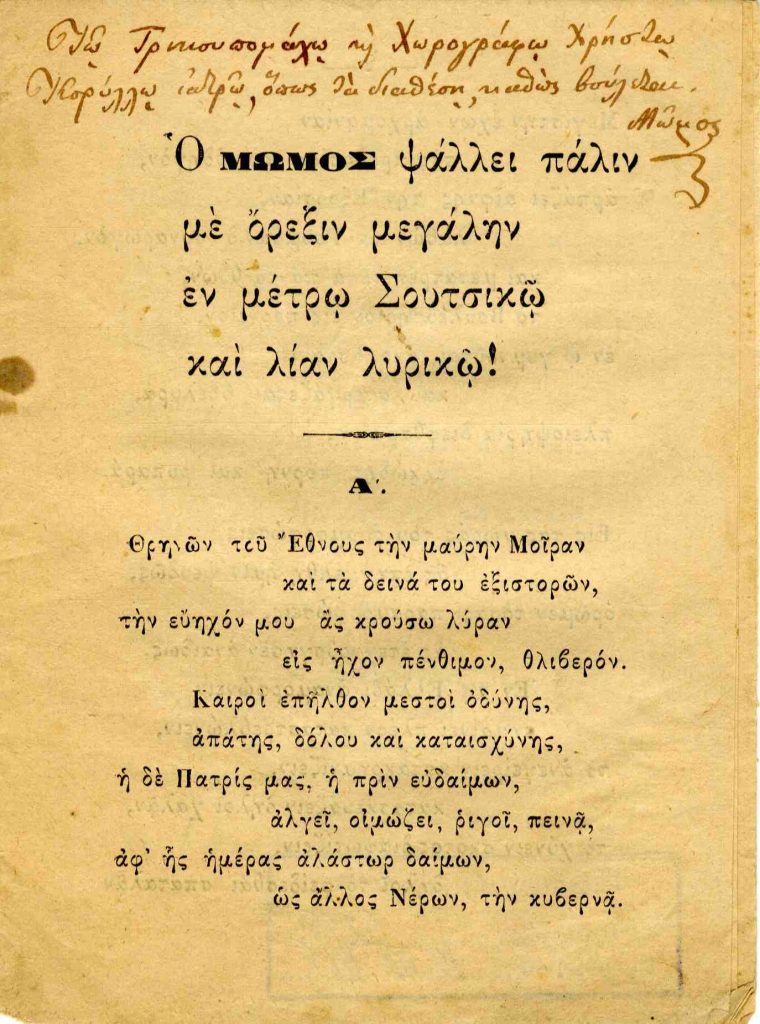 Τῷ Τρικουπομάχῳ καὶ Χωρογράφῳ Χρήστῳ
Κορύλλῳ ἰατρῷ, ὅπως τὰ διαθέσῃ, καθὼς βούλεται.
Μῶμος
Ὁ ΜΩΜΟΣ ψάλλει πάλιν
μὲ ὄρεξιν μεγάλην
ἐν μέτρῳ Σουτσικῷ
καὶ λίαν λυρικῷ!
Α΄.
Θρηνῶν τοῦ Ἔθνους τὴν μαύρην Μοῖραν
καὶ τὰ δεινά του ἐξιστορῶν,
τὴν εὔηχόν μου ἂς κρούσω λύραν
εἰς ἦχον πένθιμον, θλιβερόν.
Καιροὶ ἐπῆλθον μεστοὶ ὀδύνης,
ἀπάτης, δόλου καὶ καταισχύνης,
ἡ δὲ Πατρίς μας, ἡ πρὶν εὐδαίμων,
ἀλγεῖ, οἰμώζει, ῥιγοῖ, πεινᾷ,
ἀφ' ἧς ἡμέρας ἀλάστωρ δαίμων,
ὡς ἄλλος Νέρων, τὴν κυβερνᾷ.